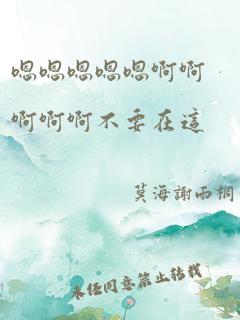 嗯嗯嗯嗯嗯啊啊
啊啊啊不要在這
莫海謝雨桐
未经同意禁止转载